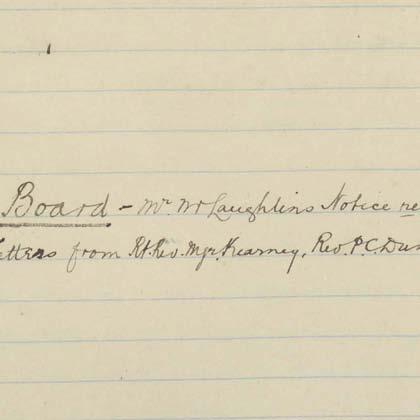 Board - Mr McLaughlins Notice re
Letters from Rt. Rev. Mgr. Kearney, Rev. P. C. Dun